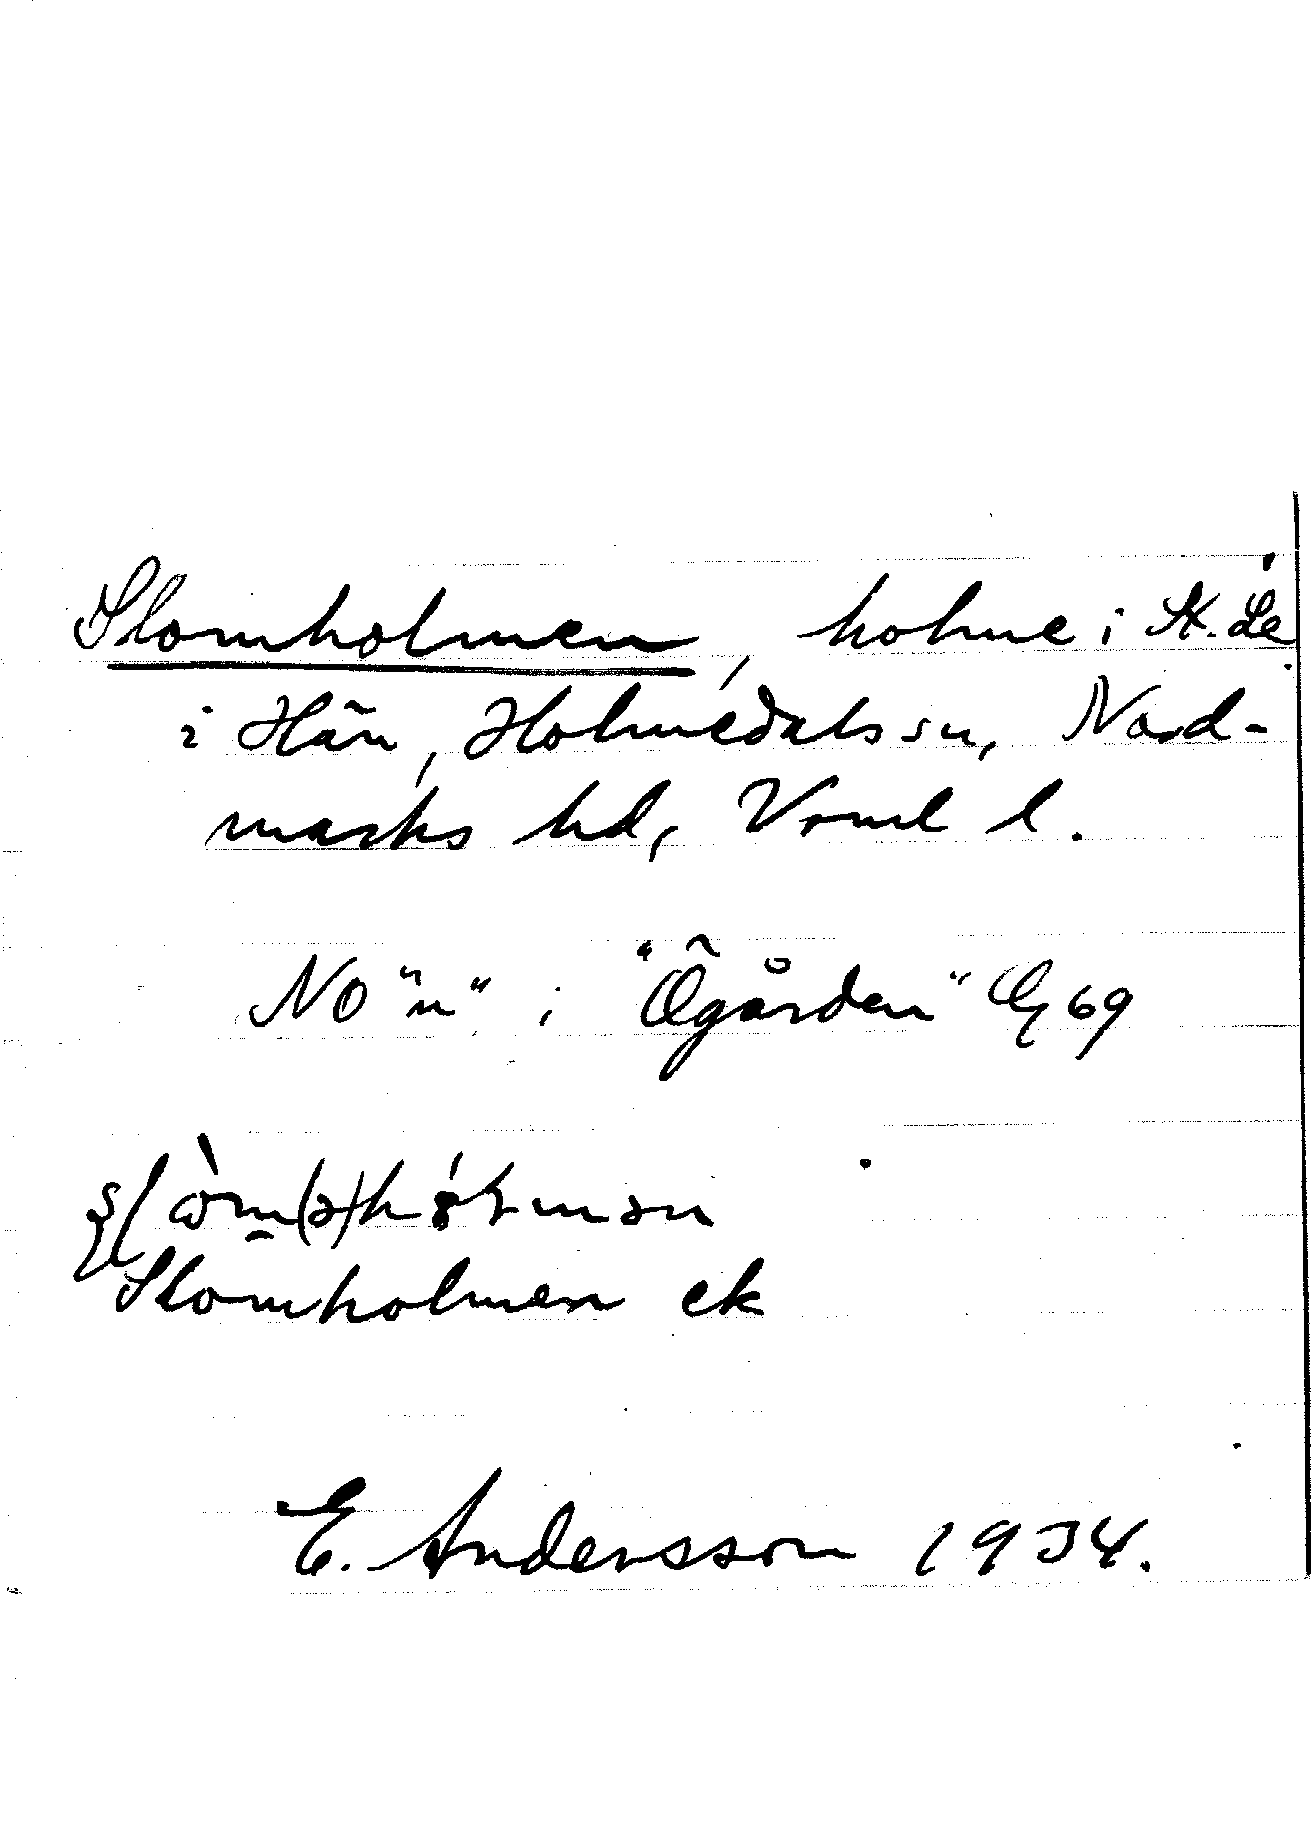 Slomholmen, holme i St. Le
i Hän, Holmedals sn, Nord-
marks hd, Vrml l.
NO "n" i "Ögården" G 69
Slomholmen ek
E. Andersson 1934.